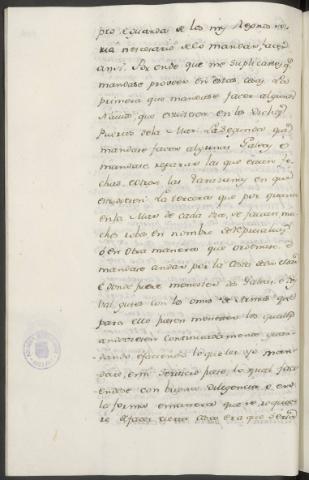 pro e guarda de los mis Regnos se-
ria necesario de lo mandar facer
ansi. Por ende que me suplicavades
mandase proveer en estas cosas. La
primera que mandase facer algunos
Navios, que estuviesen en los dichos
Puertos de la Mar. La segunda que
mandase facer algunas Galeas, e
mandase reparar las que estan fe-
chas, e otrosi las Tarazanas en que
estuviesen. La tercera que por quanto
en la Mar de cada dia, se facian mu-
chos robos en nombre de represalias,
o en otra manera que ordenase, e
mandase andar por la Costa de la Mar
e donde fuere menester dos Galeas, e dos
Valingeres con los omes de Armas que
para ello fuesen menester los quales
anduviesen continuadamente guar-
dando, e faciendo lo que les yo man-
dase, en mi servicio para lo qual facien-
dose con buena diligencia e en
la forma e manera que se requie-
re de facer tierra cosa era que serian